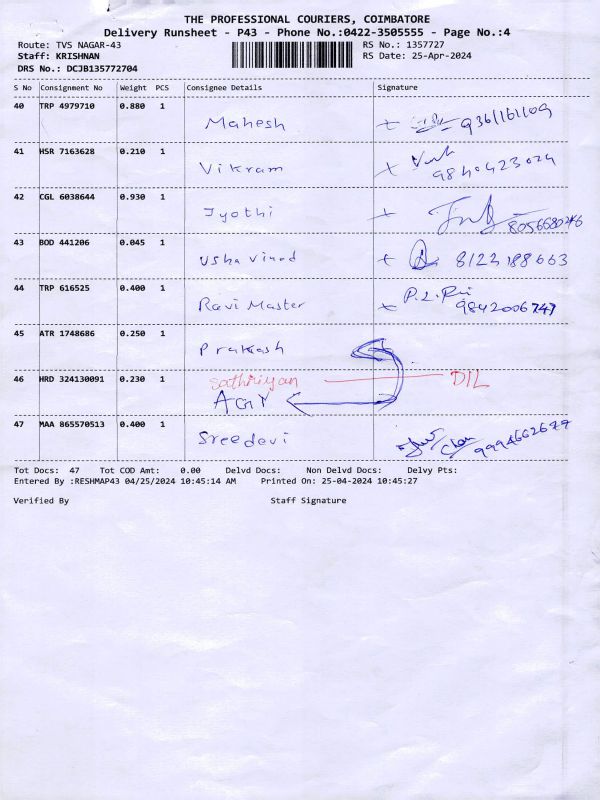 THE PROFESSIONAL COURIERS, COIMBATORE
Delivery Runsheet - P43 - Phone No.:0422-3505555 - Page No.:4
Route: TVS NAGAR-43 RS No.: 1357727
Staff: KRISHNAN RS Date: 25-Apr-2024
DRS No.: DCJB135772704
S No Consignment No Weight PCS Consignee Details Signature
40 TRP 4979710 0.880 1
Mahesh 9361161109
41 HSR 7163628 0.210 1
Vikram 9840423024
42 CGL 6038644 0.930 1
Jyothi 8056680246
43 BOD 441206 0.045 1
Usha Vinod 8122188663
44 TRP 616525 0.400 1
Ravi Master 9842006747
45 ATR 1748686 0.250 1
Prakash
46 HRD 324130091 0.230 1
Sathriyan DIL
AGY
47 MAA 865570513 0.400 1
Sreedevi 9994662677
Tot Docs: 47 Tot COD Amt: 0.00 Delvd Docs: Non Delvd Docs: Delvy Pts:
Entered By :RESHMAP43 04/25/2024 10:45:14 AM Printed On: 25-04-2024 10:45:27
Verified By Staff Signature